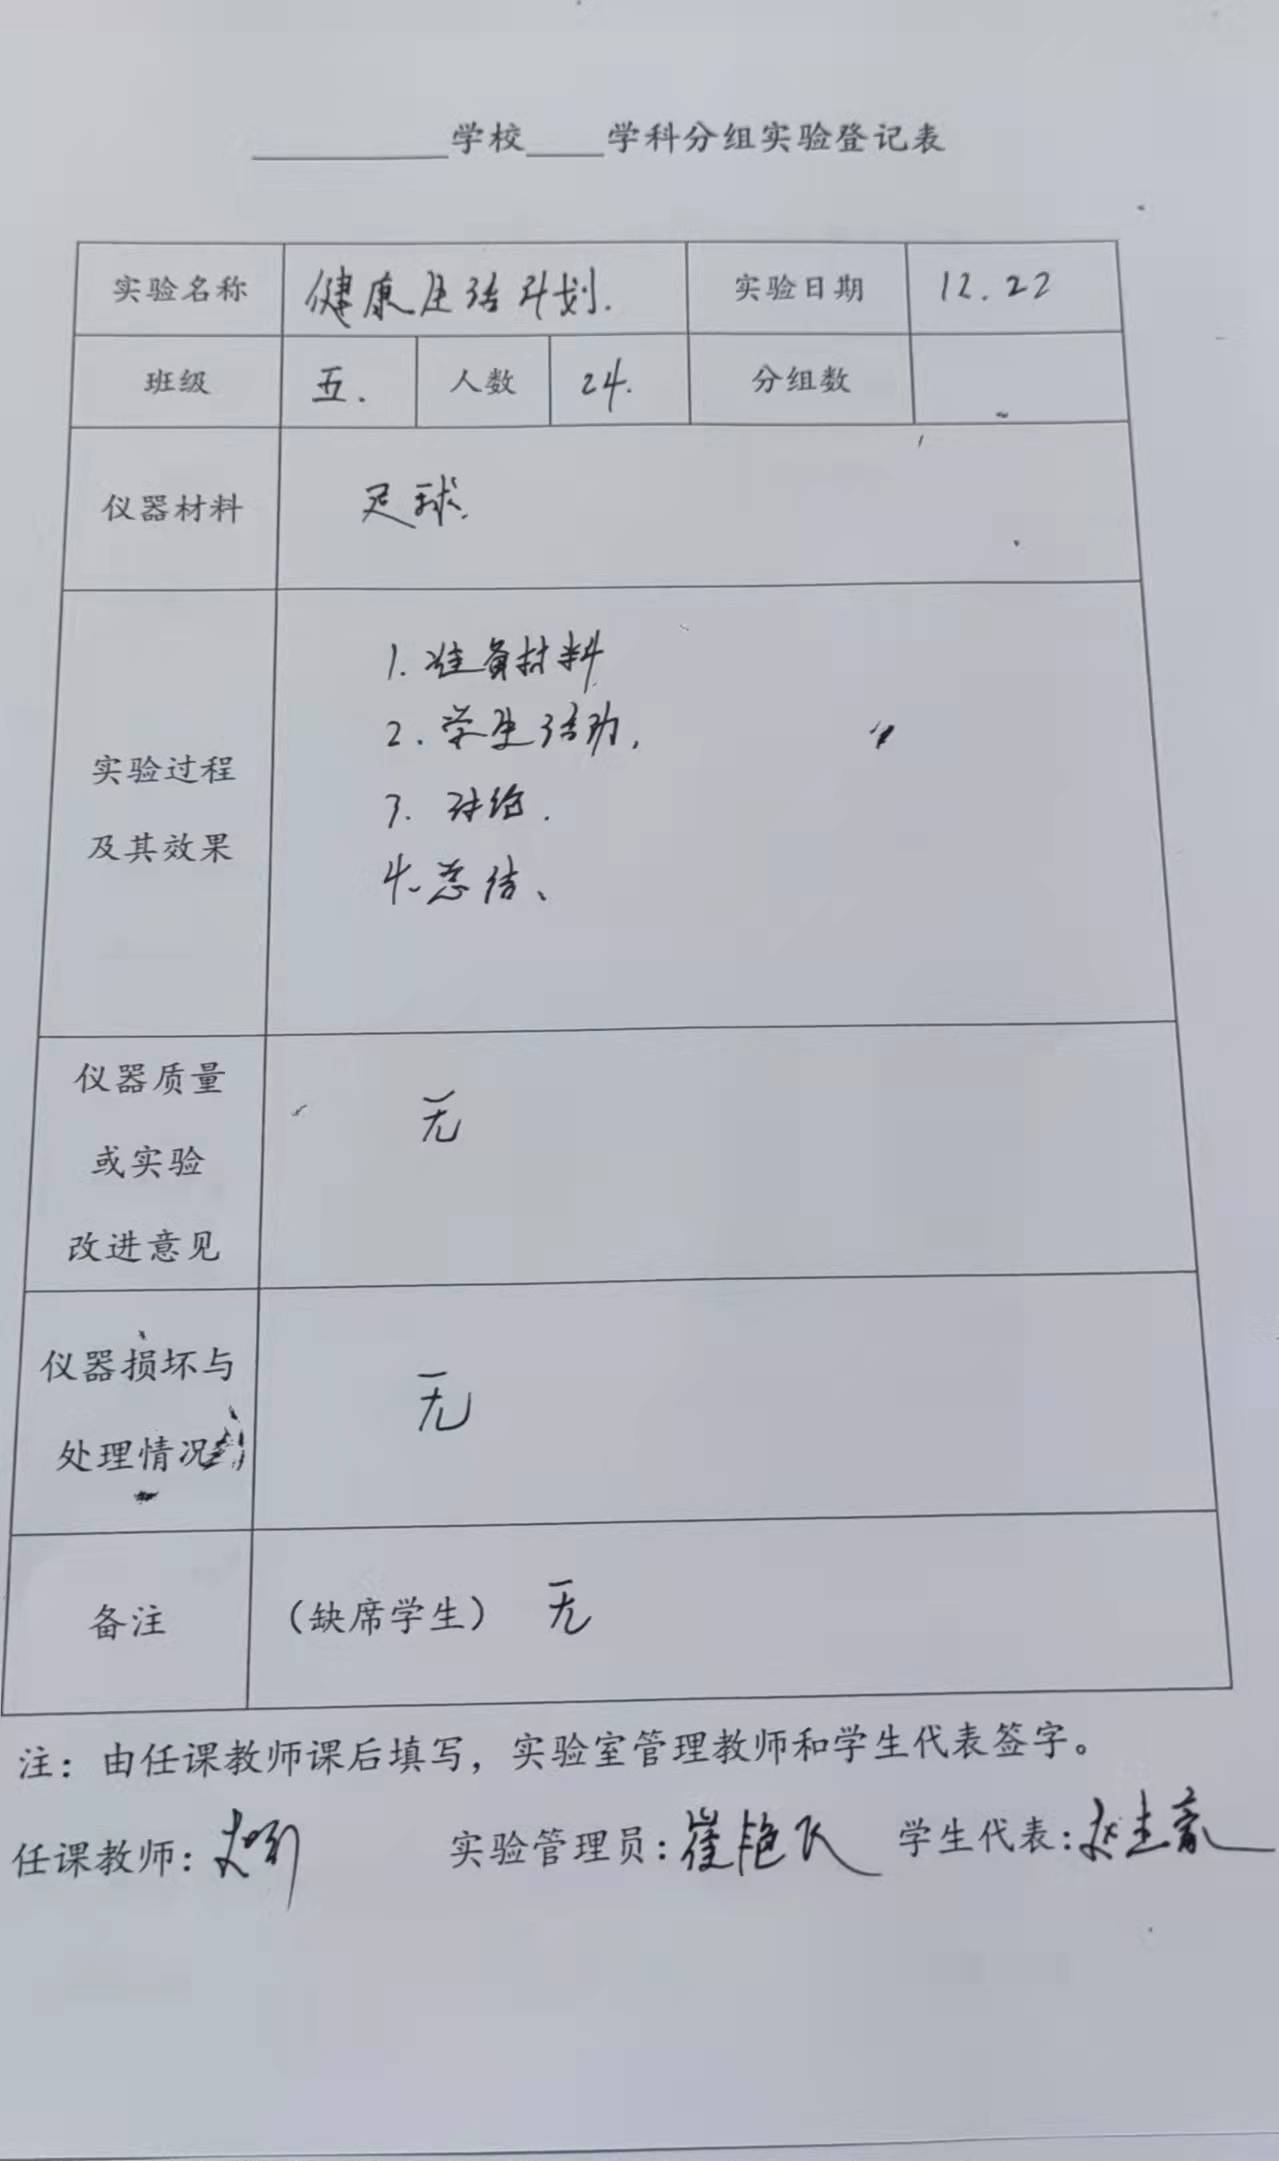 __________学校____学科分组实验登记表
实验名称 健康生活计划. 实验日期 12.22
班级 五. 人数 24. 分组数
仪器材料 足球.
实验过程
及其效果
1. 准备材料
2. 学生活动,
3. 讨论.
4、总结、
仪器质量
或实验
改进意见
无
仪器损坏与
处理情况
无
备注 (缺席学生) 无
注：由任课教师课后填写，实验室管理教师和学生代表签字。
任课教师: 实验管理员:崔艳 学生代表: